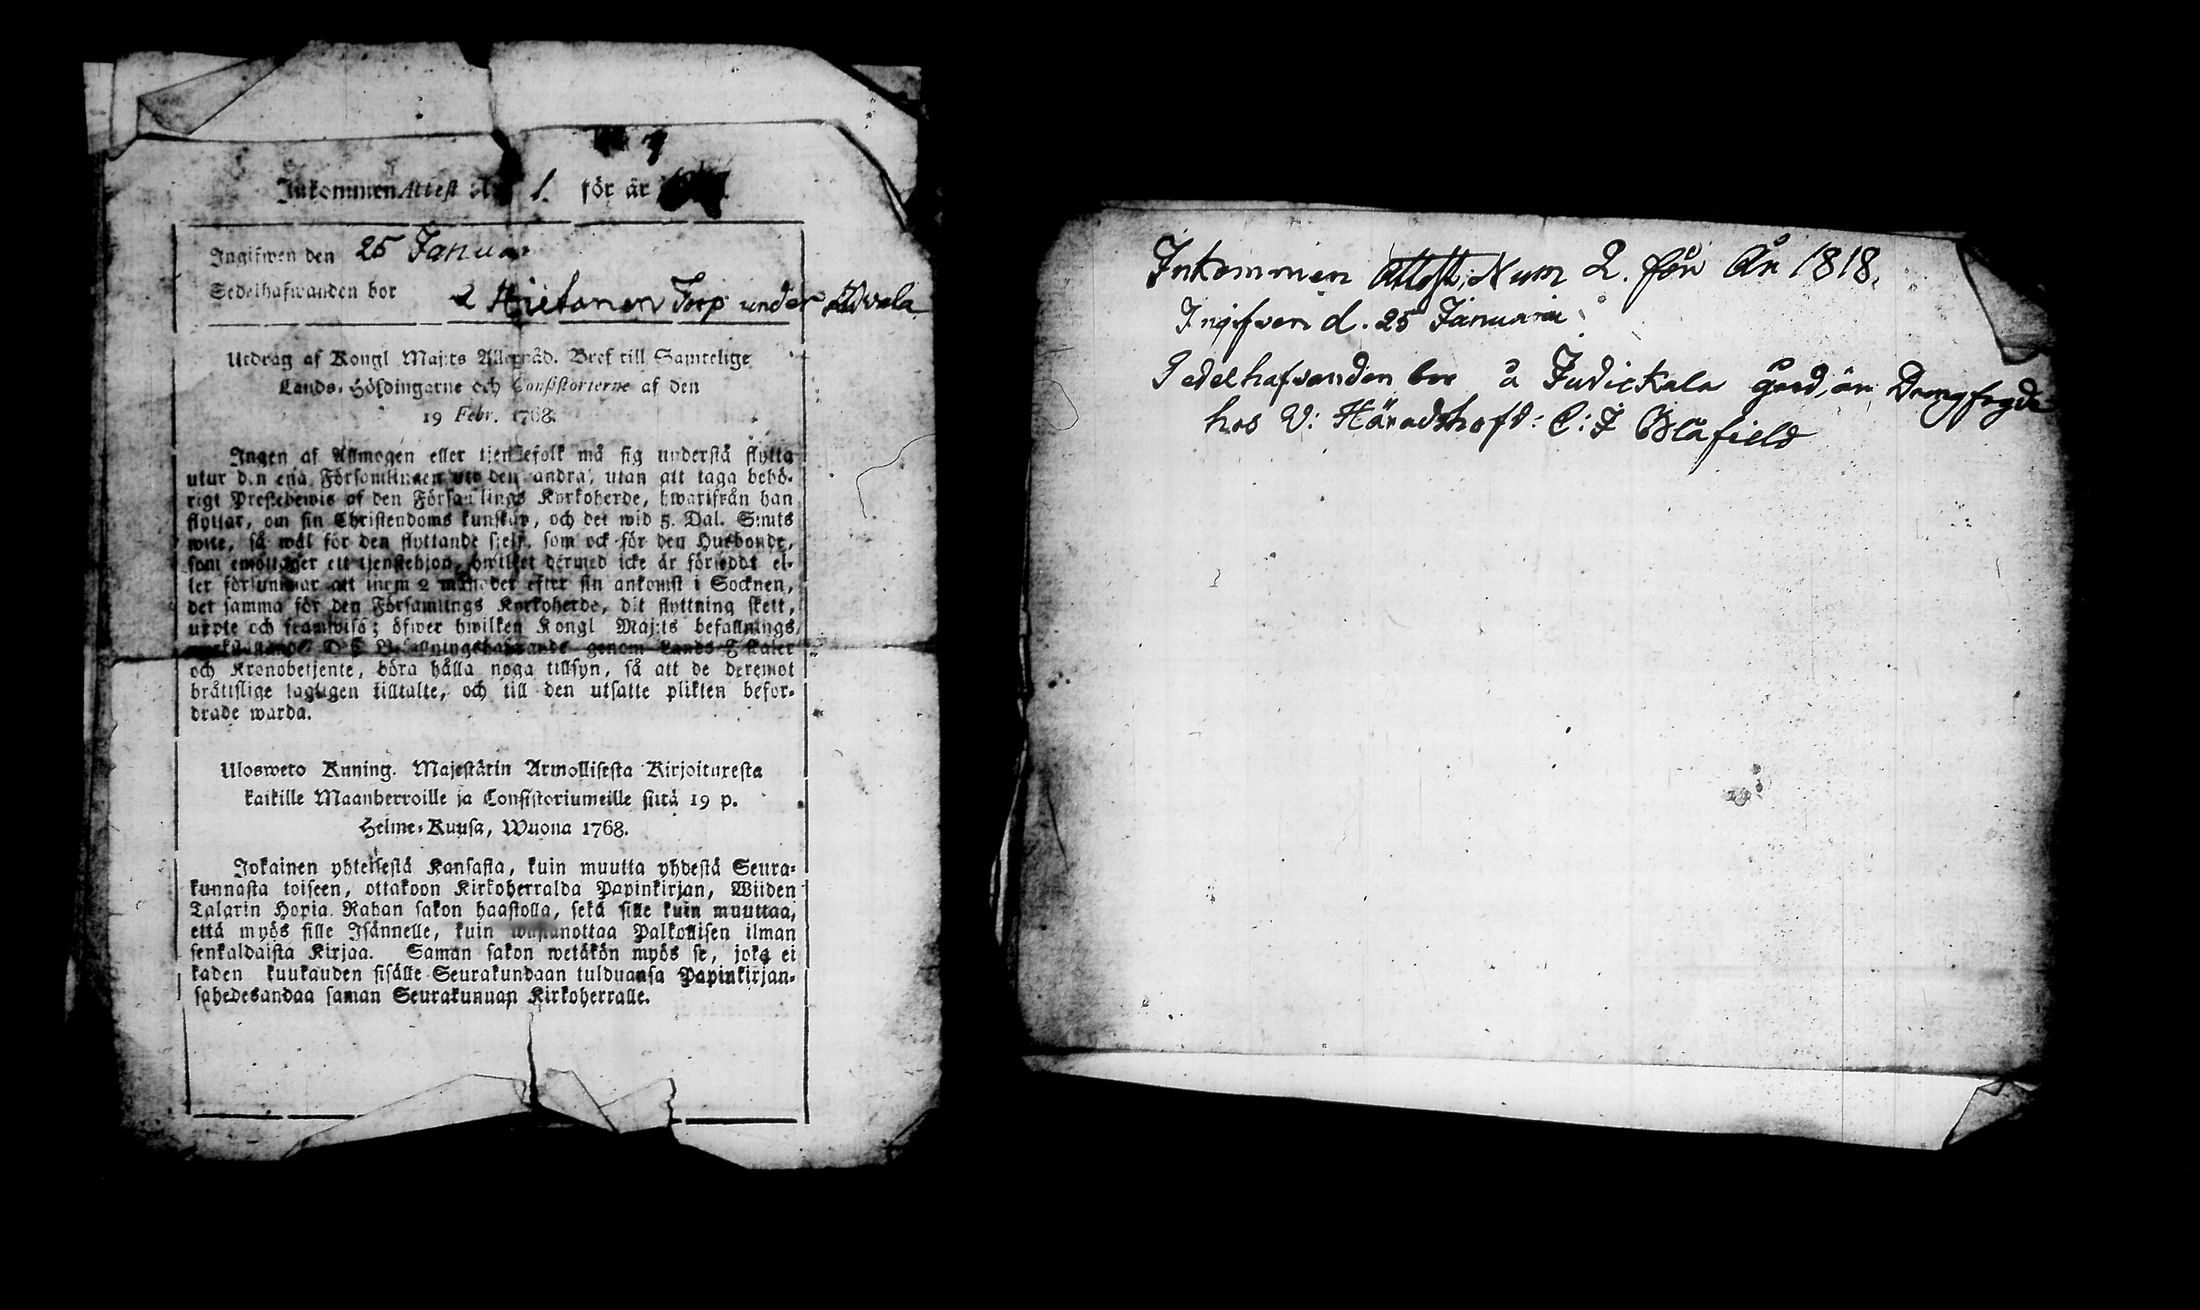 Inkommen Attest 1. för år
Ingifwen den 25 Januar
Sedelhafwanden bor Hietanen Torp under
Utdrag af Kongl Maj:ts Allernåd. Bref till Samtelige
Lands-Höfdingarne och Consistorierne af den
19 Febr. 1768.
Ingen af Allmogen eller tjenstefolk må sig understå flytta
utur den ena Församlingen uti den andra, utan att taga behö-
rigt Prestebewis af den Församlings Kyrkoherde, hwarifrån han
flyttar, om sin Christendoms kunskap, och det wid 5. Dal. S:mts
wite, så wäl för den flyttande sjelf, som ock för den Husbonde,
som emottager ett tjenstehjon, hwilket dermed icke är förseddt el-
ler försummar att inom 2 månader efter sin ankomst i Socknen,
det samma för den Församlings Kyrkoherde, dit flyttning skett,
upte och framwisa; öfwer hwilken Kongl Maj:ts befallnings
genom Lands Fiskaler
och Kronobetjente, böra hålla noga tillsyn, så att de deremot
bråttslige lagligen tilltalte, och till den utsatte plikten befor-
drade warda.
Ulosweto Kuning. Majestätin Armollisesta Kirjoituxesta
kaikille Maanherroille ja Consistoriumeille siitä 19 p.
Helme-Kuusa, Wuona 1768.
Jokainen yhteisestä Kansasta, kuin muutta yhdestä Seura-
kunnasta toiseen, ottakoon Kirkoherralda Papinkirjan, Wiiden
Talarin Hopia Rahan sakon haastolla, sekä sille kuin muuttaa,
että myös sille Isännelle, kuin wastanottaa Palkollisen ilman
senkaldaista Kirjaa. Saman sakon wetäkön myös se, joka ei
kaden kuukauden sisälle Seurakundaan tulduansa Papinkirjan-
sahedesandaa saman Seurakunnan Kirkoherralle.
Inkommen Attest, Num 2. för År 1818.
Ingifwen d. 25 Januarii
Sedelhafwanden bor å Judickala gård, är Drengfogde
hos V: Häradshöfd: C: J Blåfield